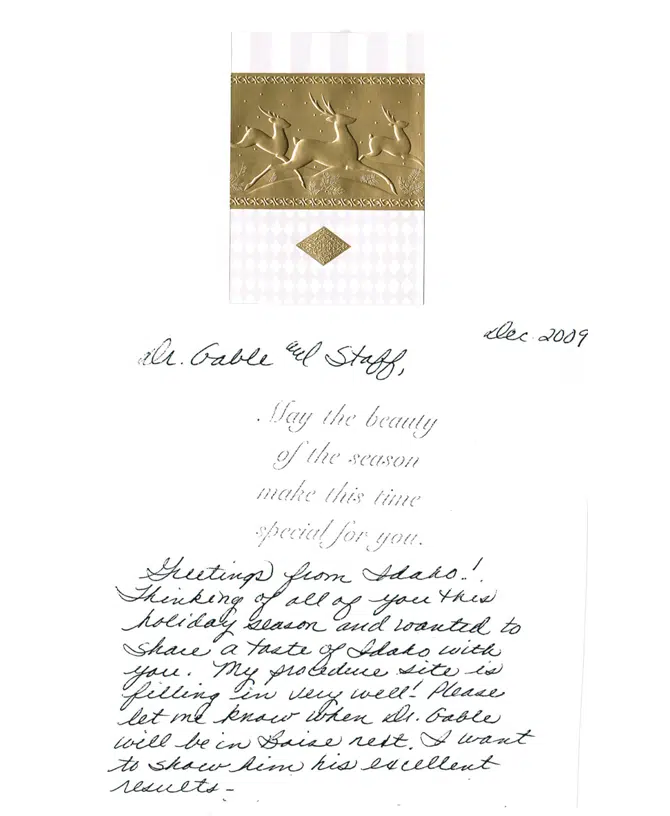 Dec. 2009
Dr. Gable and Staff,
May the beauty
of the season
make this time
special for you.
Greetings from Idaho!
Thinking of all of you this
holiday season and wanted to
share a taste of Idaho with
you. My procedure site is
filling in very well! Please
let me know when Dr. Gable
will be in Boise next. I want
to show him his excellent
results-